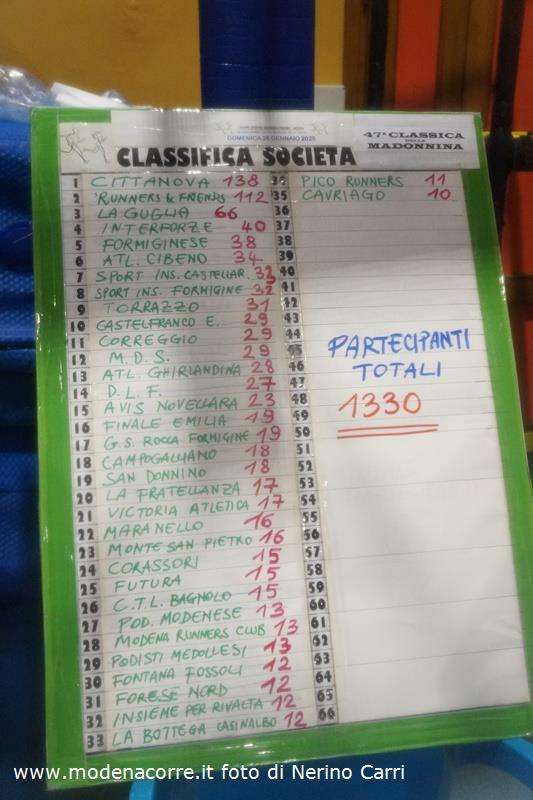 DOMENICA 26 GENNAIO 2025
47ª CLASSICA
DELLA
MADONNINA
CLASSIFICA SOCIETA
1 CITTANOVA 138
2 RUNNERS & FRIENDS 112
3 LA GUGLIA 66
4 INTERFORZE 40
5 FORMIGINESE 38
6 ATL. CIBENO 34
7 SPORT INS. CASTELLAR. 32
8 SPORT INS. FORMIGINE 32
9 TORRAZZO 31
10 CASTELFRANCO E. 29
11 CORREGGIO 29
12 M.D.S. 29
13 ATL. GHIRLANDINA 28
14 D.L.F. 27
15 AVIS NOVELLARA 23
16 FINALE EMILIA 19
17 G.S. ROCCA FORMIGINE 19
18 CAMPOGALLIANO 18
19 SAN DONNINO 18
20 LA FRATELLANZA 17
21 VICTORIA ATLETICA 17
22 MARANELLO 16
23 MONTE SAN PIETRO 16
24 CORASSORI 15
25 FUTURA 15
26 C.T.L. BAGNOLO 15
27 POD. MODENESE 13
28 MODENA RUNNERS CLUB 13
29 PODISTI MEDOLLESI 13
30 FONTANA FOSSOLI 12
31 FORESE NORD 12
32 INSIEME PER RIVALTA 12
33 LA BOTTEGA CASINALBO 12
34 PICO RUNNERS 11
35 CAVRIAGO 10
36
37
38
39
40
41
42
43
44
45
46
47
48
49
50
51
52
53
54
55
56
57
58
59
60
61
62
63
64
65
66
PARTECIPANTI
TOTALI
1330
www.modenacorre.it foto di Nerino Carri